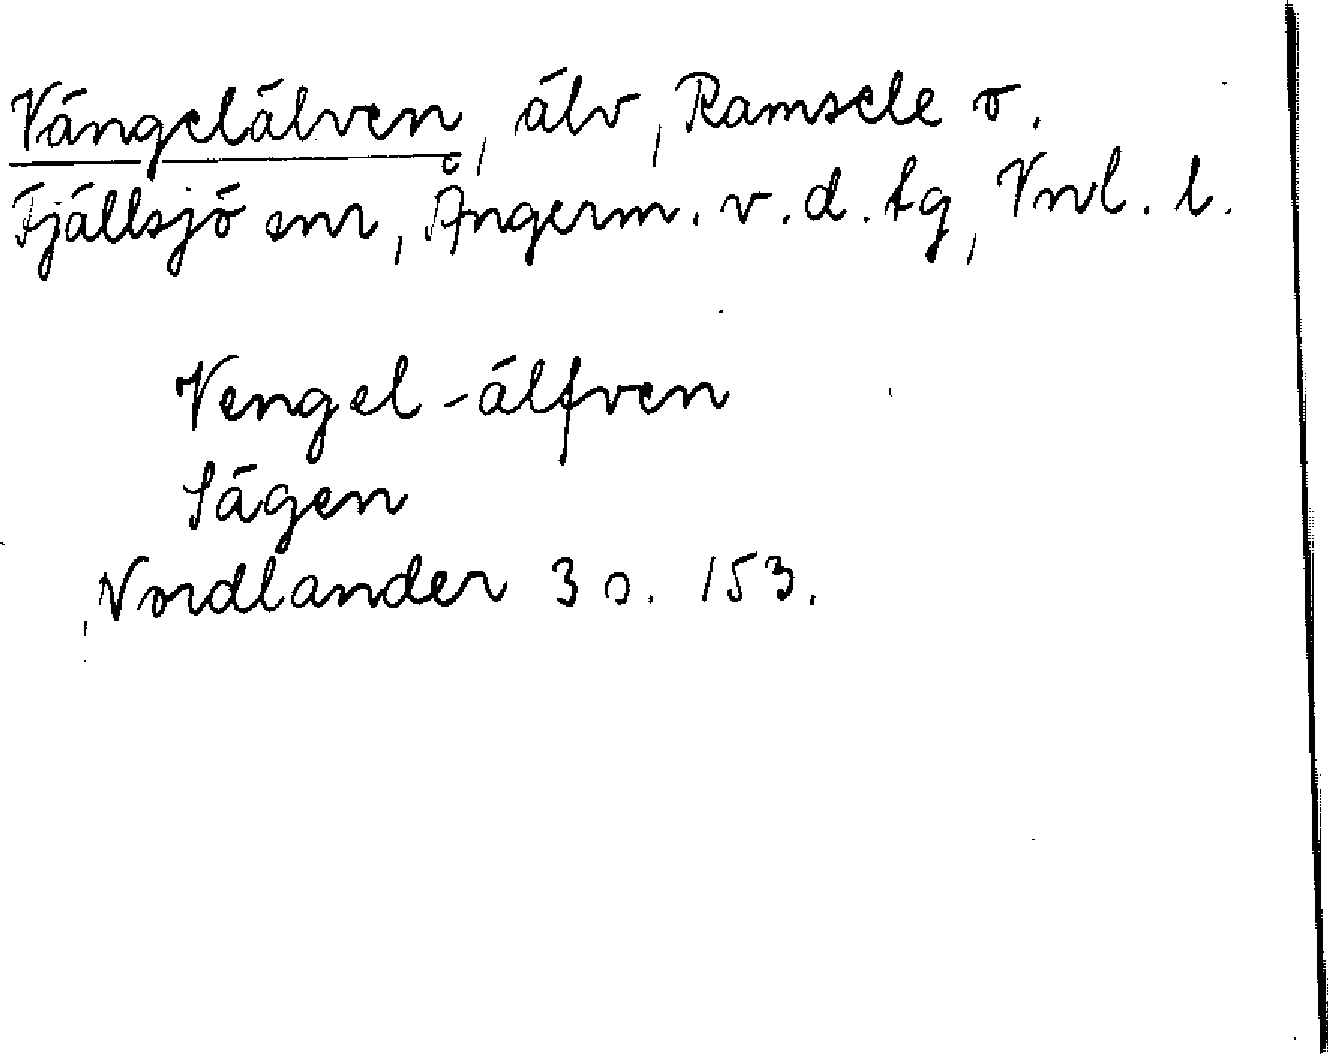 Vängelälven, älv, Ramsele o.
Fjällsjö snr, Ångerm. v. d. tg, Vnl. l.
Vengel-älfven
Sägen
Nordlander 3 s. 153.